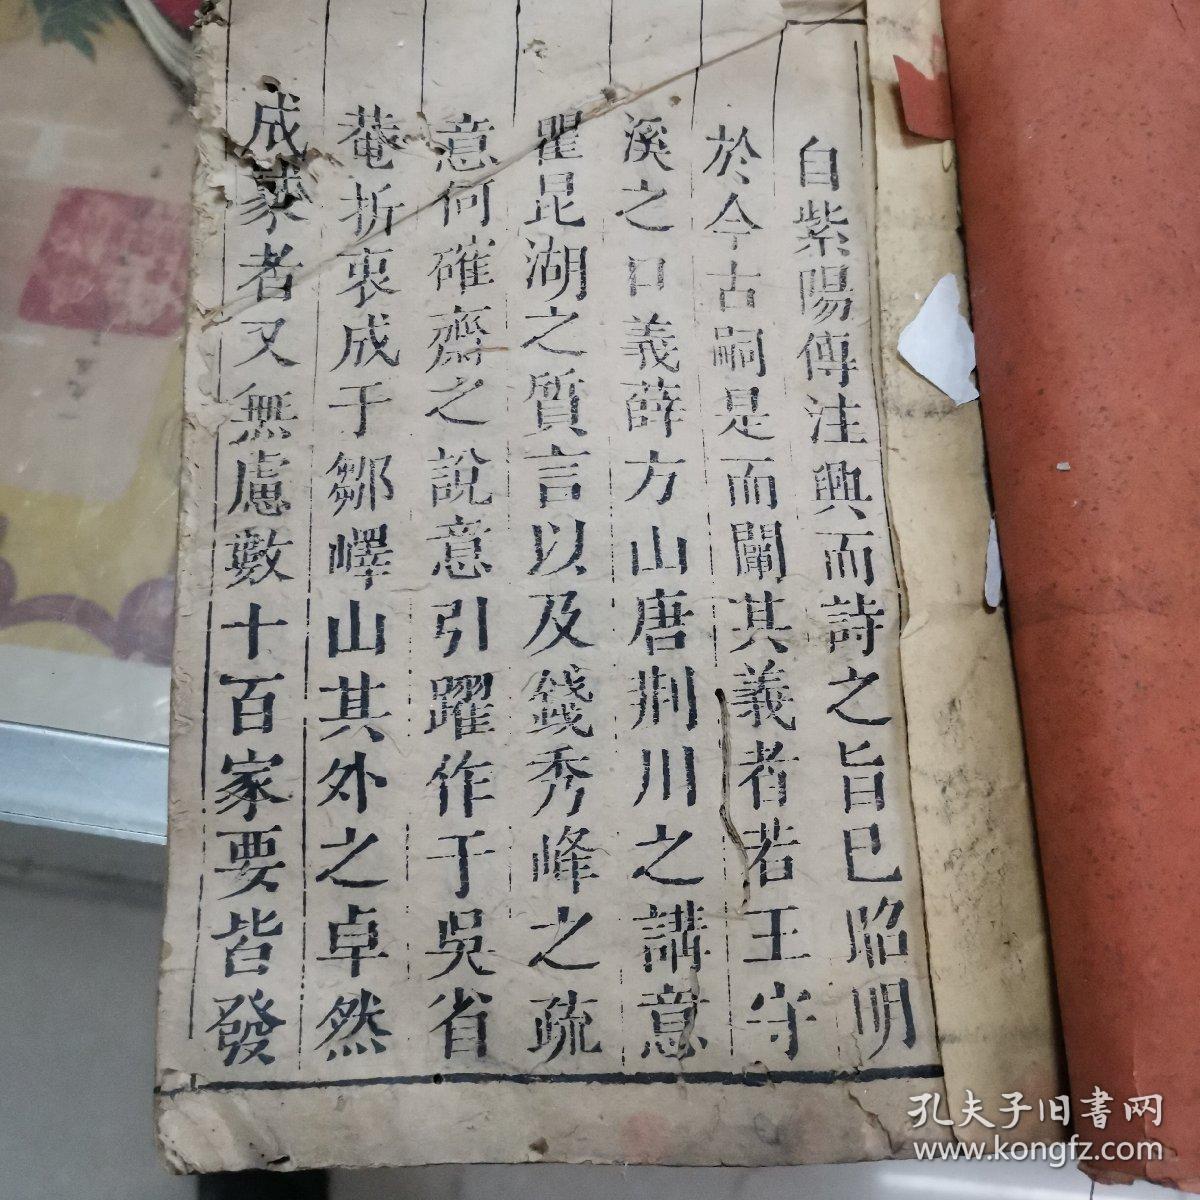 自紫陽傳注興而詩之旨已昭明
於今古嗣是而闡其義者若王守
溪之口義薛方山唐荆川之講意
瞿昆湖之質言以及錢秀峰之疏
意何確齋之說意引躍作于吳省
菴折衷成于鄒嶧山其外之卓然
成家者又無慮數十百家要皆發
孔夫子旧書网
www.kongfz.com